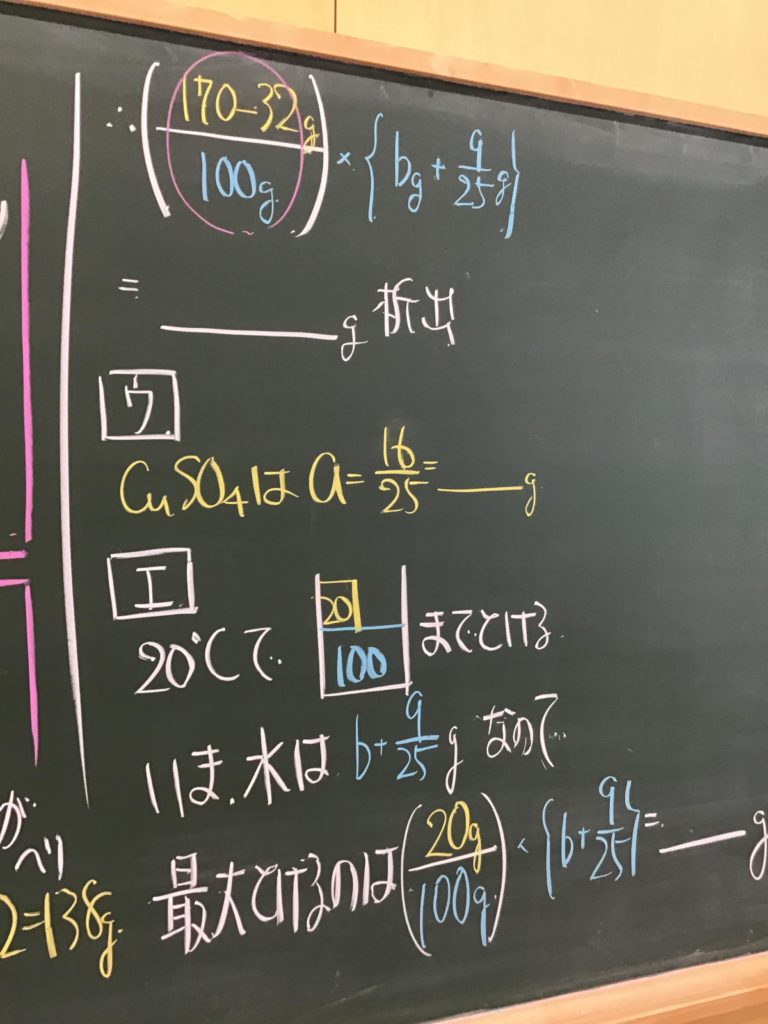 ∴(170-32g/100g)×{bg+9/25g}
= ____g 析出
ウ
CuSO4は a=16/25=____g
エ
20℃で 20/100 までとける
いま、水は b+9/25g なので
最大とけるのは(20g/100g)×{b+9/25}=____g
が
へり
2=138g